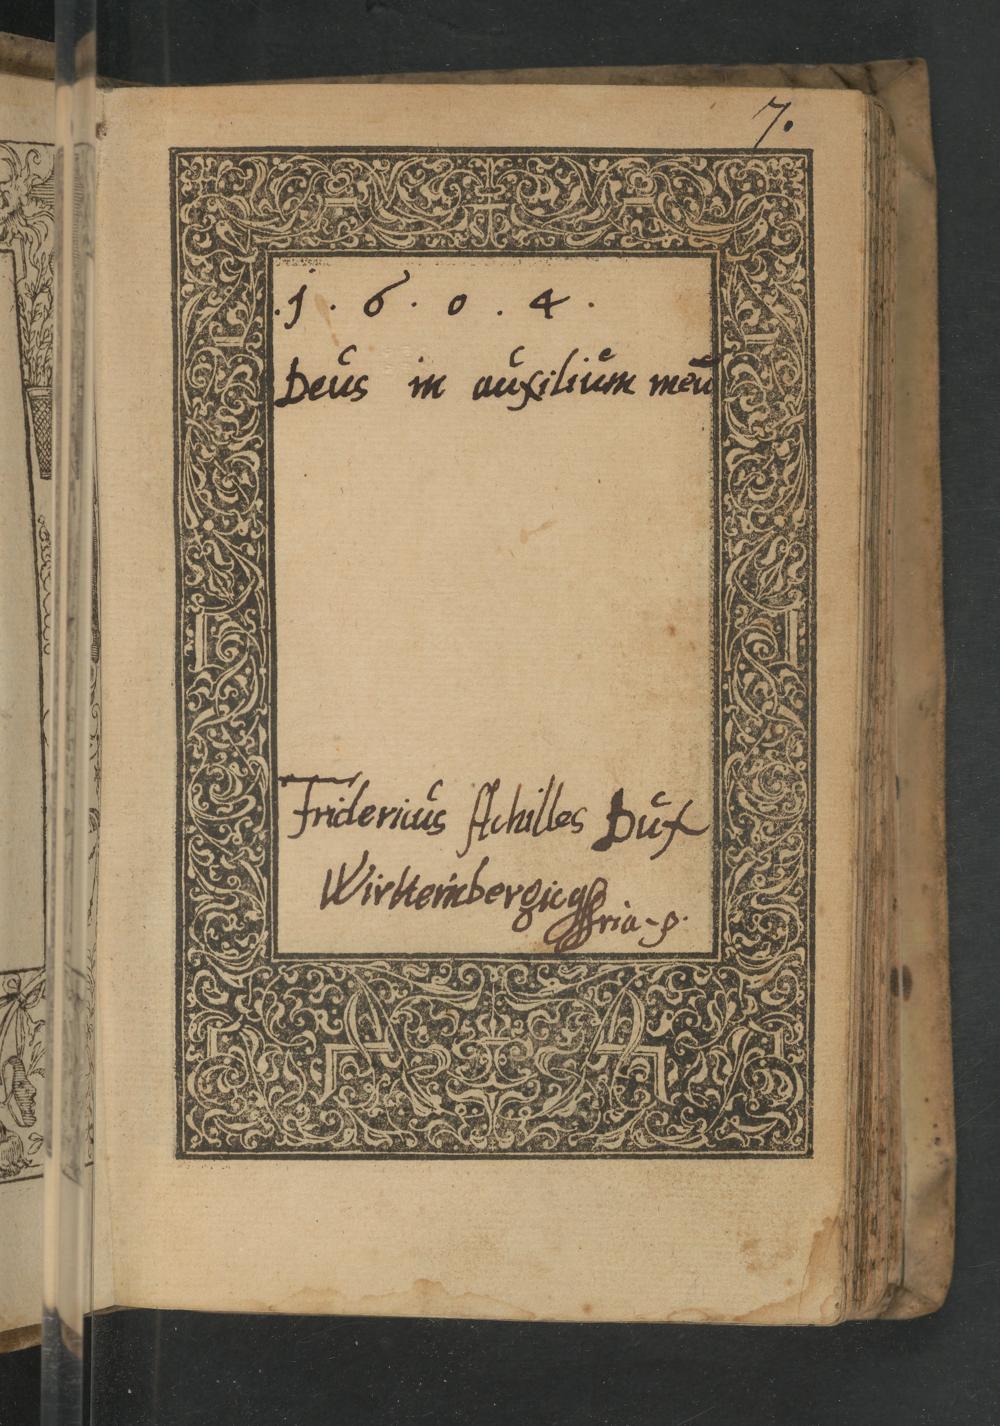 7.
.1.6.0.4.
Deus in auxilium meū
Fridericus Achilles Dux
Wirttembergicq